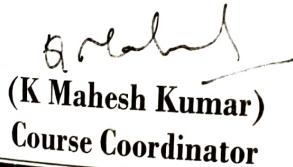 (K Mahesh Kumar)
Course Coordinator